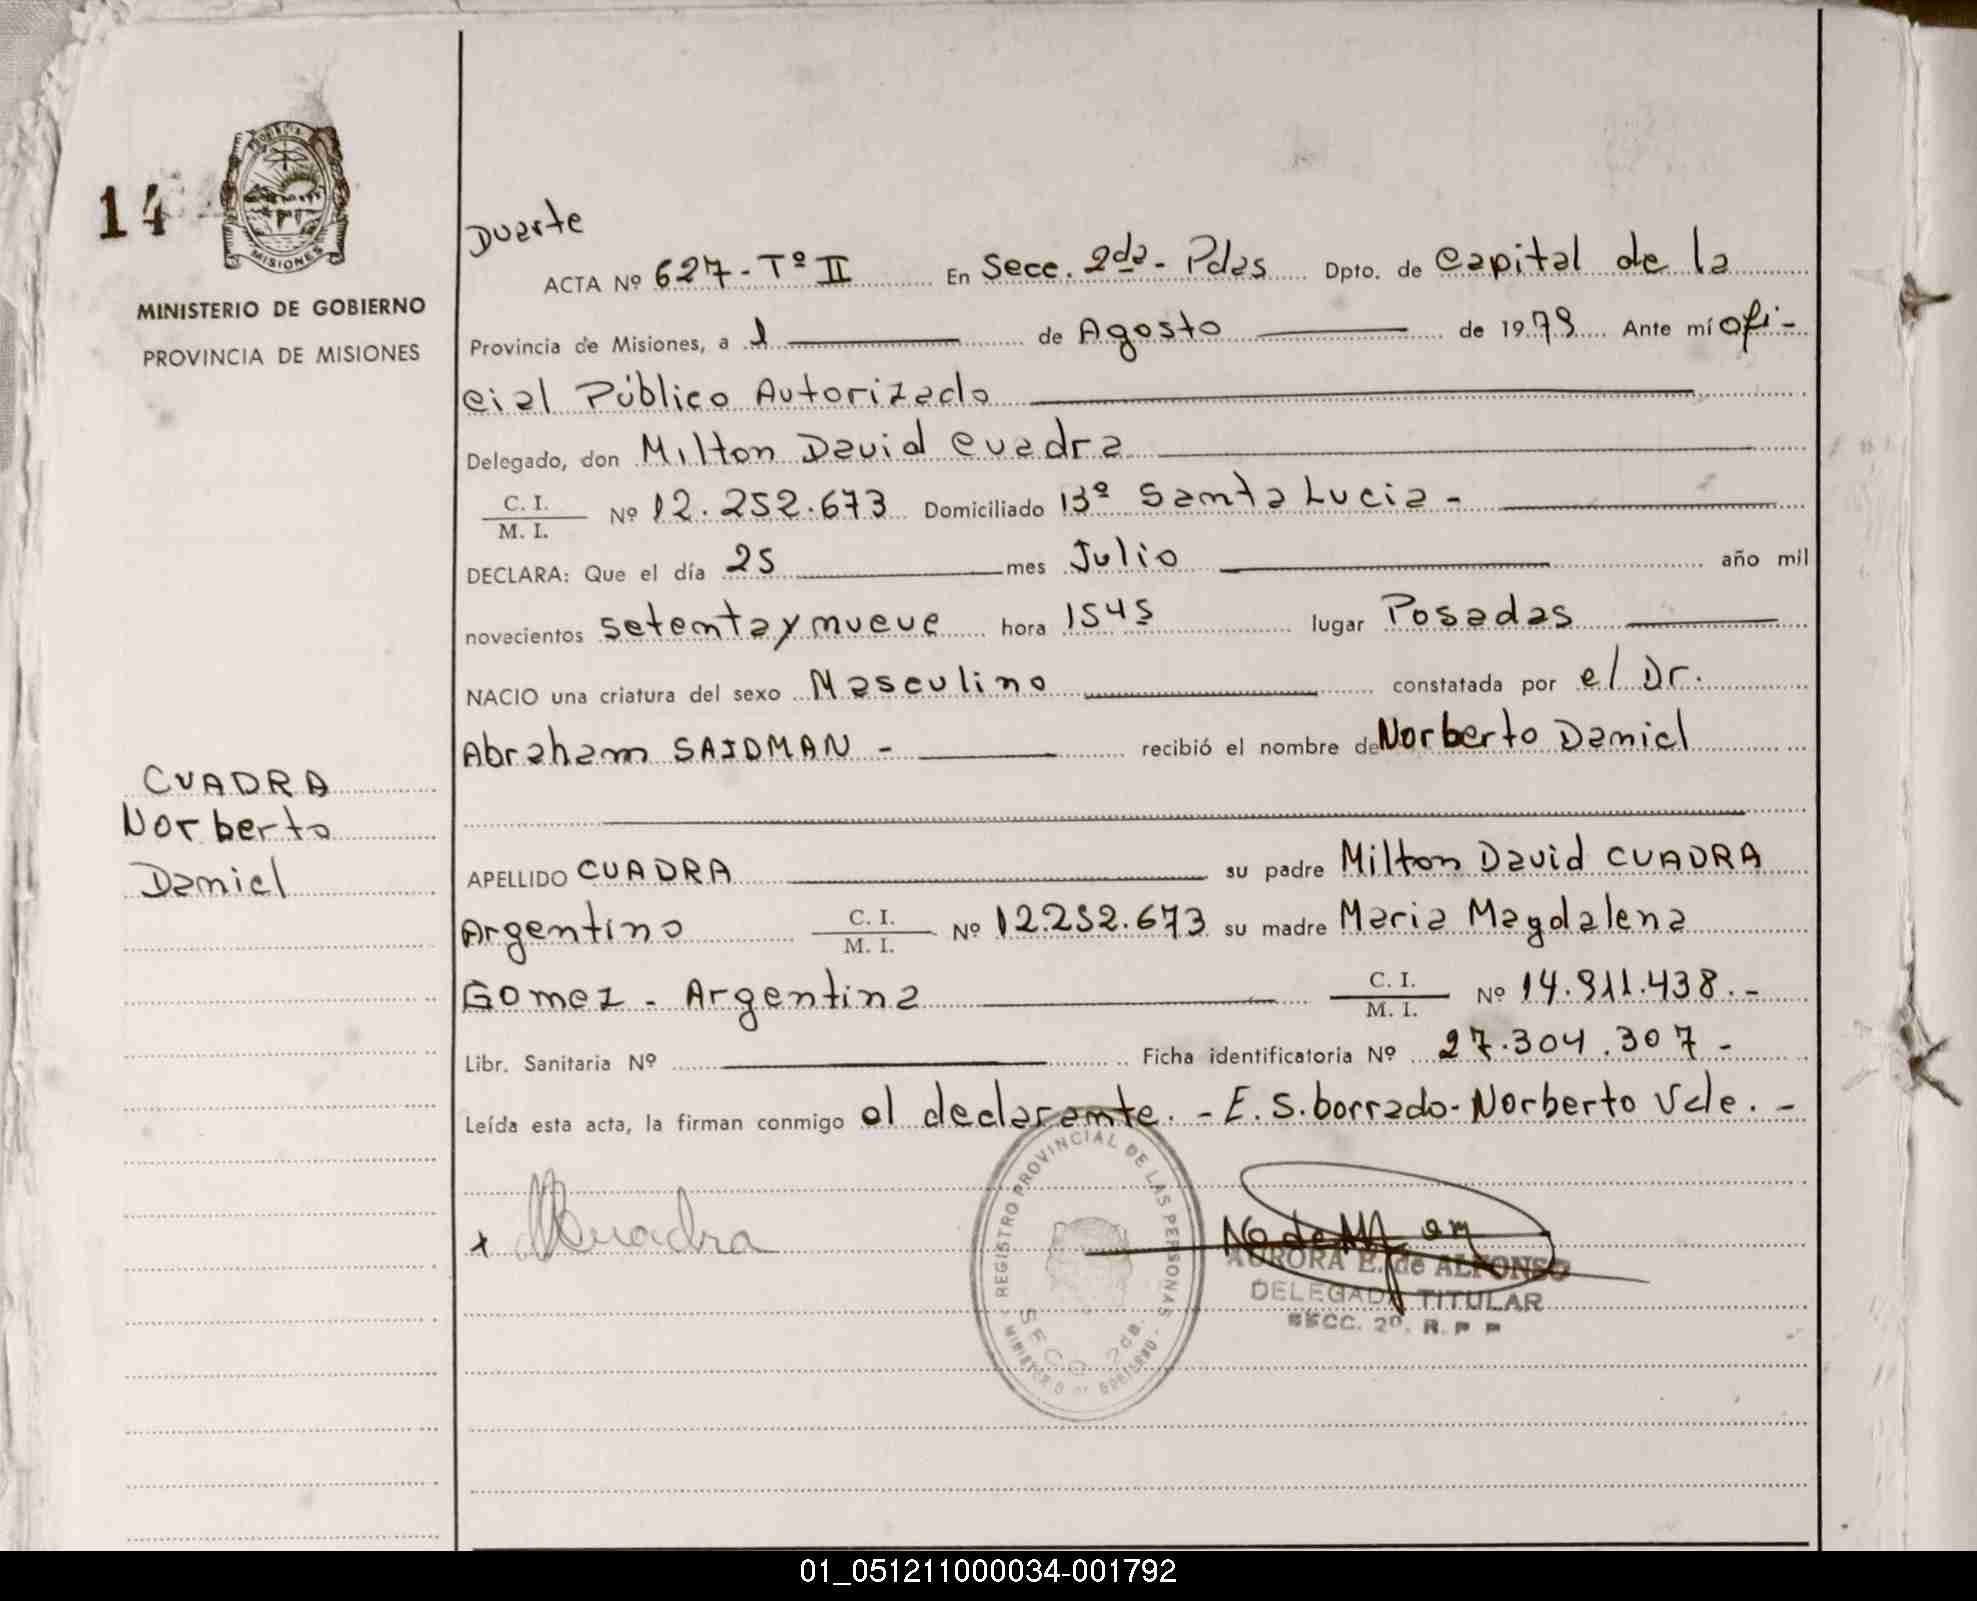 14
PROVINCIA
MISIONES
MINISTERIO DE GOBIERNO
PROVINCIA DE MISIONES
CUADRA
Norberto
Daniel
Duarte
ACTA Nº 627-Tº II En Secc. 2da- Pdas Dpto. de Capital de la
Provincia de Misiones, a 1 de Agosto de 1979 Ante mí ofi-
cial Público Autorizado
Delegado, don Milton David Cuadra
C. I.
M. I. Nº 12.252.673 Domiciliado 13º Santa Lucia -
DECLARA: Que el día 25 mes Julio año mil
novecientos setenta y nueve hora 1545 lugar Posadas
NACIO una criatura del sexo Masculino constatada por el Dr.
Abraham SAIDMAN - recibió el nombre de Norberto Daniel
APELLIDO CUADRA su padre Milton David CUADRA
Argentino C. I. M. I. Nº 12.252.673 su madre Maria Magdalena
Gomez - Argentina C. I. M. I. Nº 14.911.438.-
Libr. Sanitaria Nº Ficha identificatoria Nº 27.304.307-
Leída esta acta, la firman conmigo el declarante. - E. S. borrado- Norberto Vale. -
x MCuadra
REGISTRO PROVINCIAL DE LAS PERSONAS
SECC. 2da.
MINISTERIO DE GOBIERNO
AURORA E. de ALFONSO
DELEGADA TITULAR
SECC. 2º. R. P P
01_051211000034-001792